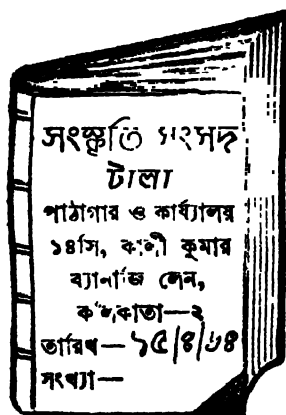 সংস্কৃতি সংসদ
টালা
পাঠাগার ও কার্য্যালয়
১৪সি, কালী কুমার
ব্যানার্জি লেন,
কলিকাতা—২
তারিখ—১৫/৪/৬৪
সংখ্যা—